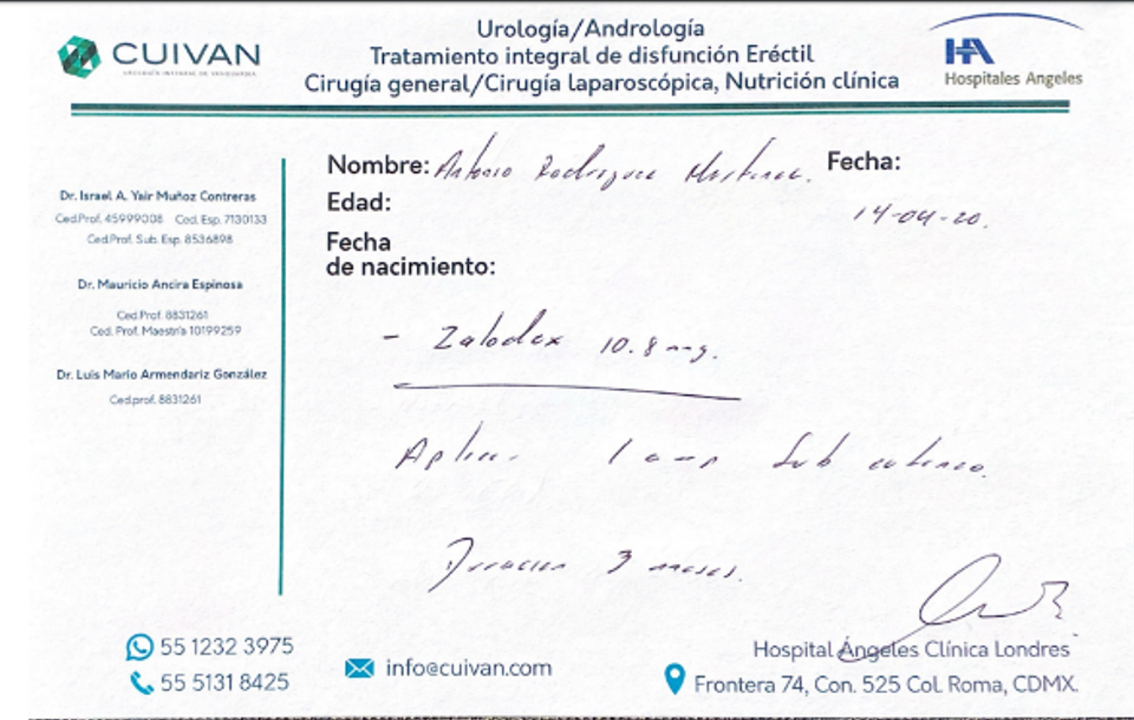 CUIVAN
UROLOGÍA INTEGRAL DE VANGUARDIA
Urología/Andrología
Tratamiento integral de disfunción Eréctil
Cirugía general/Cirugía laparoscópica, Nutrición clínica
HA
Hospitales Angeles
Dr. Israel A. Yair Muñoz Contreras
Ced.Prof. 45999008 Ced. Esp. 7130133
Ced.Prof. Sub. Esp. 8536898
Dr. Mauricio Ancira Espinosa
Ced.Prof. 8831261
Ced. Prof. Maestría 10199259
Dr. Luis Mario Armendariz González
Ced.prof. 8831261
Nombre: Antonio Rodriguez Martinez. Fecha:
Edad:
14-04-20.
Fecha
de nacimiento:
- Zaladex 10.8 mg.
Aplicar 1 amp Sub cutanea.
Duracion 3 meses.
55 1232 3975
55 5131 8425
info@cuivan.com
Hospital Ángeles Clínica Londres
Frontera 74, Con. 525 Col. Roma, CDMX.